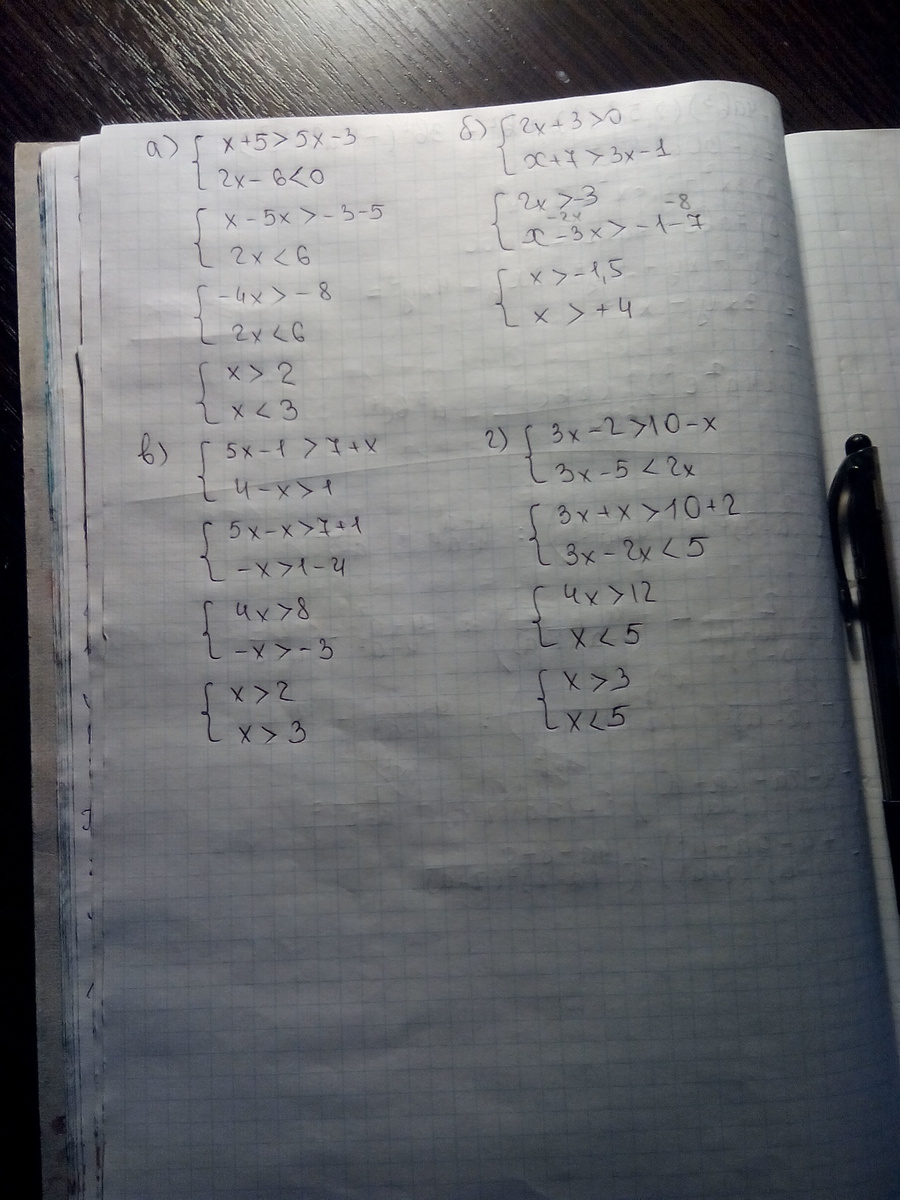 а) { x+5>5x-3
2x-6<0
{ x-5x>-3-5
2x<6
{ -4x>-8
2x<6
{ x>2
x<3
б) { 2x+3>0
x+7>3x-1
{ 2x>-3
-2x -8
x-3x>-1-7
{ x>-1,5
x>+4
в) { 5x-1>7+x
4-x>1
{ 5x-x>7+1
-x>1-4
{ 4x>8
-x>-3
{ x>2
x>3
г) { 3x-2>10-x
3x-5<2x
{ 3x+x>10+2
3x-2x<5
{ 4x>12
x<5
{ x>3
x<5